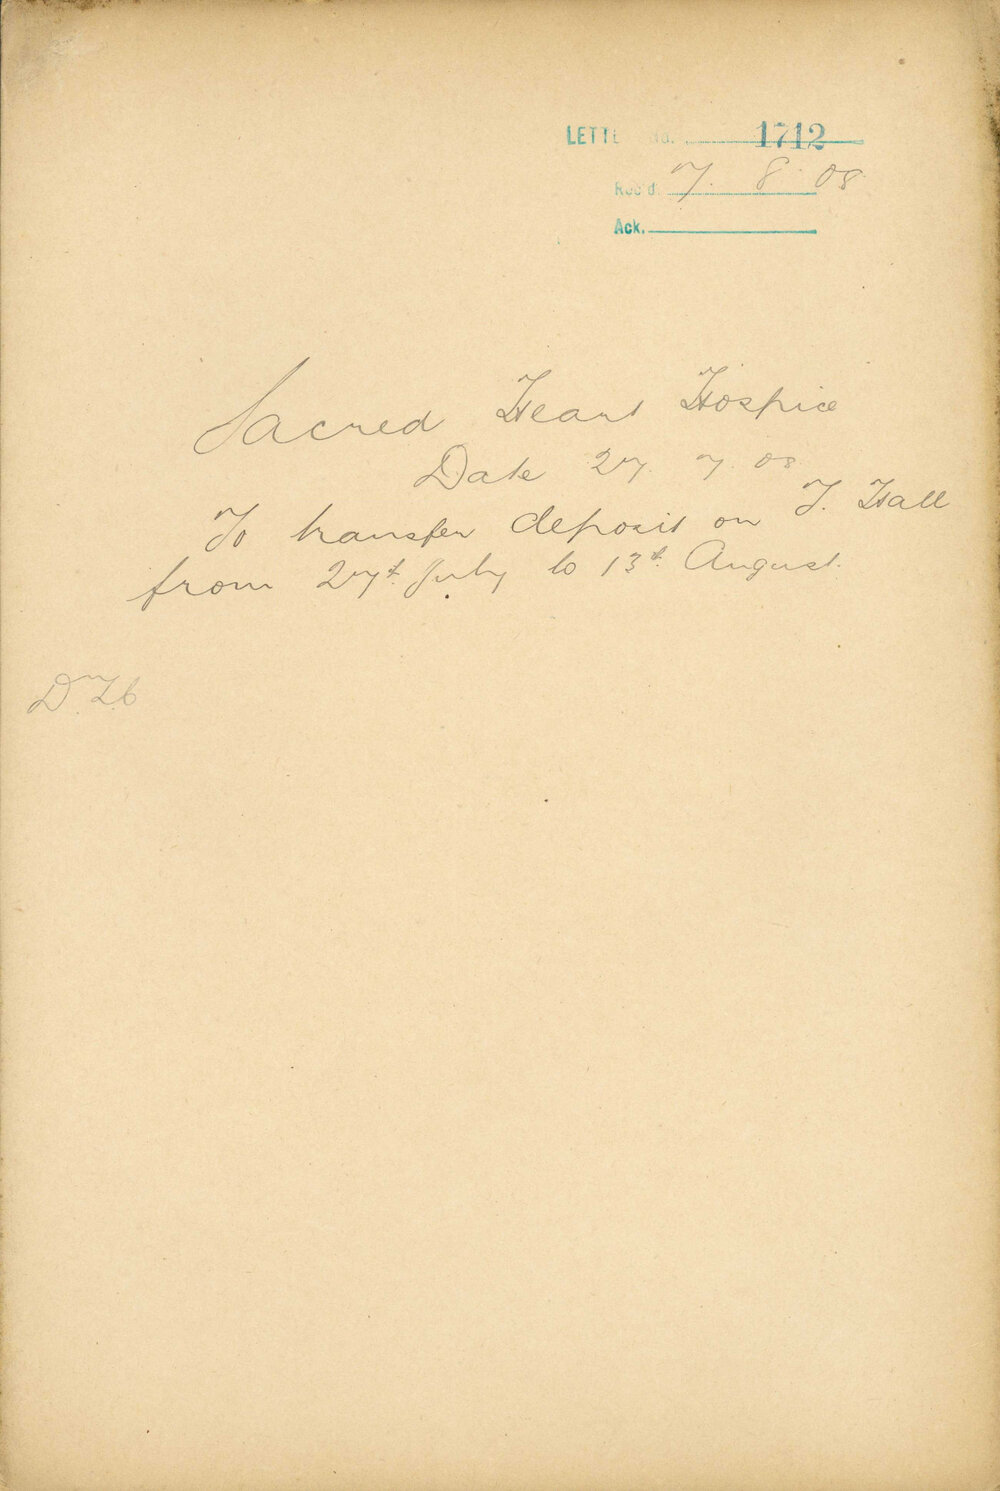 LETTER No. 1712
Rec'd. 7. 8. 08.
Ack.
Sacred Heart Hospice
Date 27. 7. 08
To transfer deposit on T. Hall
from 27th July to 13th August.